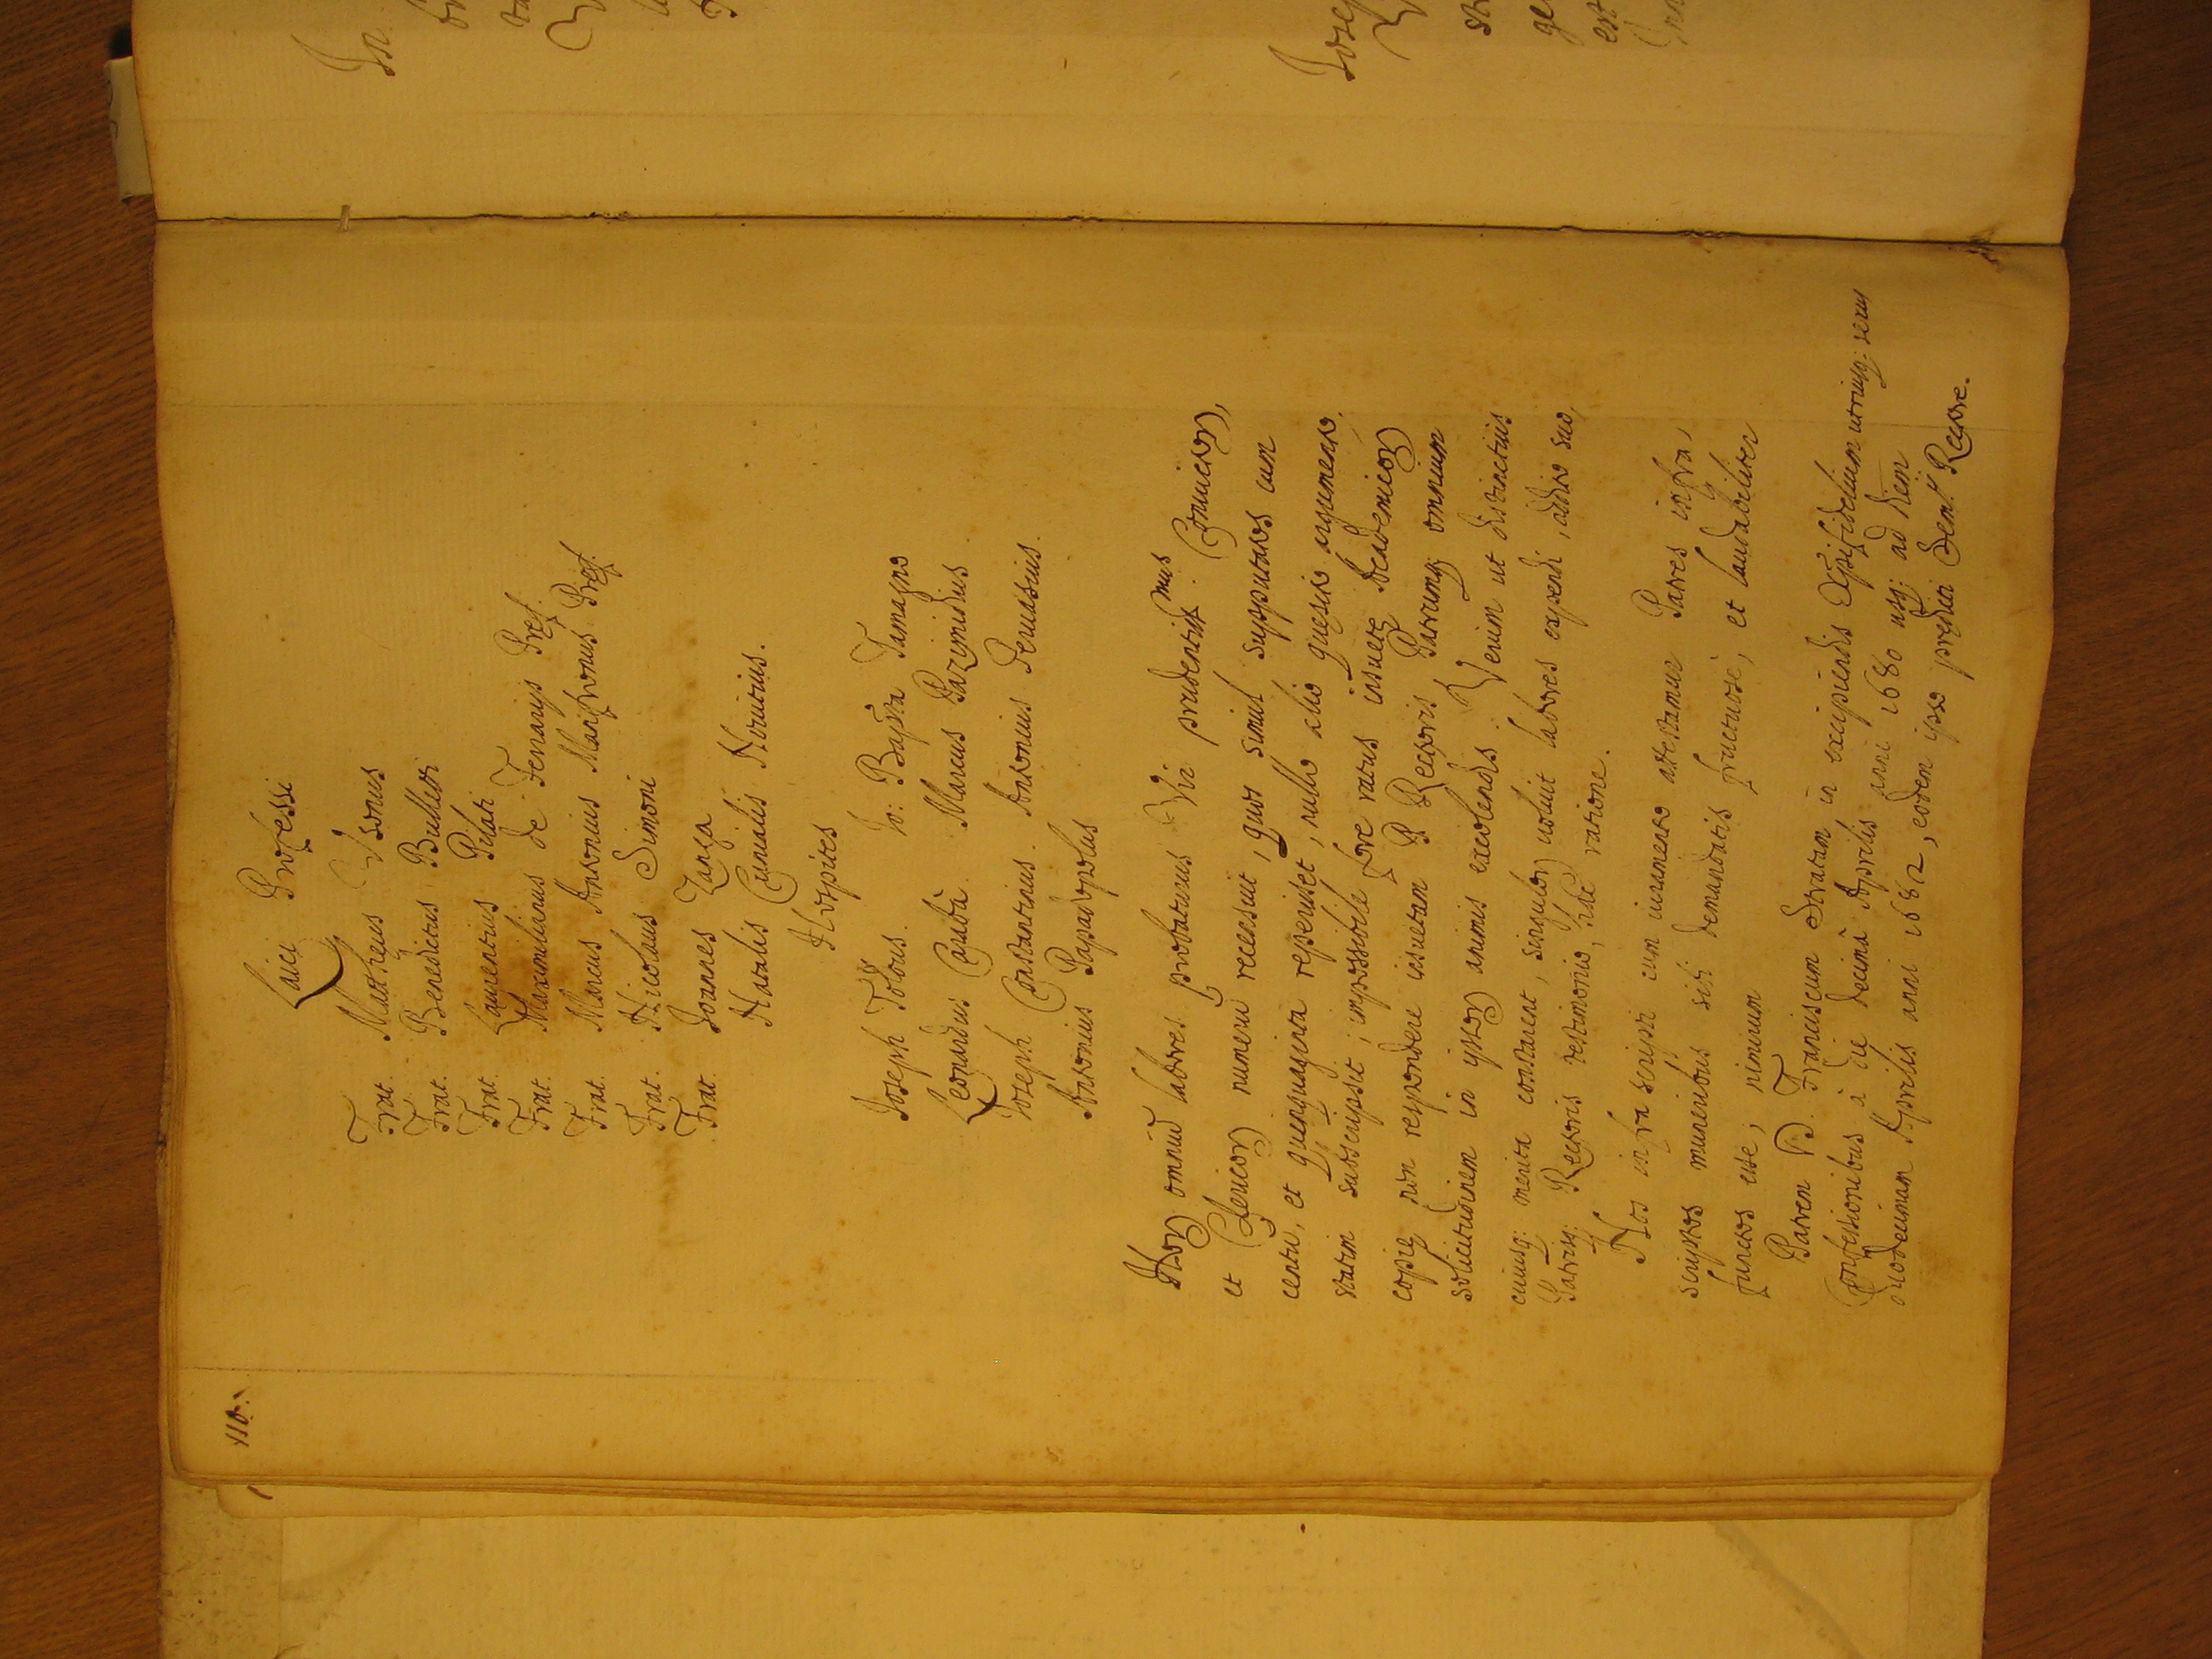 110.
Laici Professi
Frat. Mattheus Isonus
Frat. Benedictus Bulletti
Frat. Laurentius Pilati
Frat. Maximilianus de Ferrarijs Prof.
Frat. Marcus Antonius Prof.
Frat. Nicolaus Simoni
Frat. Joannes Zanga
Natalis Cunialis Nouitius.
Hospites
Joseph Tolous. Jo: Bapta Tamagno
Leonardus Capuda. Marcus Pazymidius
Joseph Constantinus. Antonius Peruassius.
Antonius Papadopolus
Horū omniū labores probaturus Vir prudentiss.mus Conuictorū,
et Clericorū numeru recensuit, quos simul supputatos cum
centu, et quenquaginta reperisset, nullo alio quesito argumento,
statim subscripsit; impossibile fore ratus insuetę Academicorū
copię non respondere insuetam P Rectoris, Patrumq; omnium
solicitudinem in ipsorū animis excolendis. Verum ut distinctius
cuiusq: merita constarent, singulorū uoluit labores expendi, addito suo,
Patrisq; Rectoris testimonio, hac ratione.
Nos infra scripti cum iuramento attestamur Patres infra,
scriptos muneribus sibi demandatis fructuose, et laudabiliter
functos esse; nimirum
Patrem D. Franciscum Stratam in excipiendis fidelium utriusq; sexus
Confessionibus à die decimà Aprilis anni 1680 usq; ad diem
duodecimam Aprilis anni 1682, eodem ipso predicti Sem.ij Rectore.